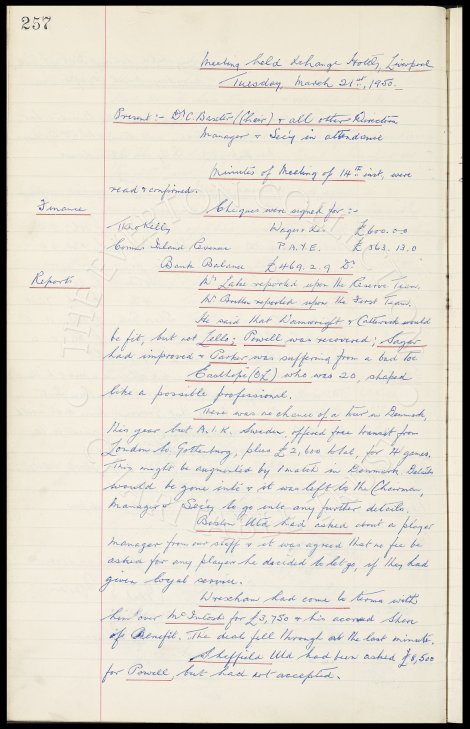 257
Meeting held Exchange Hotel, Liverpool
Tuesday, March 21st, 1950.
Present :- Dr C. Baxter (Chair) & all other Directors
Manager & Sec'y in attendance
Minutes of Meeting of 14th inst. were
read & confirmed.
Finance
Cheques were signed for :-
Theo Kelly Wages &c. £600.0.0
Comm Inland Revenue P.A.Y.E. £363.13.0
Bank Balance £469.2.9 Dr.
Reports
Mr Lake reported upon the Reserve Team.
Mr Britton reported upon the First Team.
He said that Wainwright & Catterick would
be fit, but not Lello; Powell was recovered; Sagar
had improved & Parker was suffering from a bad toe.
who was 20, shaped
like a possible professional.
There was no chance of a tour in Denmark,
this year but A.I.K. Sweden, offered free transit from
London to Gothenburg, plus £2,600 total, for 4 games.
This might be augmented by 1 match in Denmark. Details
would be gone into & it was left to the Chairman,
Manager & Sec'y to go into any further details.
Boston Utd had asked about a player
manager from our staff & it was agreed that no fee be
asked for any player he decided to let go, if they had
given loyal service.
Wrexham had come to terms with
him over McIntosh for £3,750 & his accrued share
of Benefit. The deal fell through at the last minute.
Sheffield Utd had been asked £8,500
for Powell, but had not accepted.